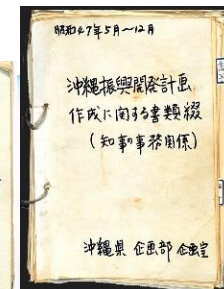 昭和47年5月〜12月
沖縄振興開発計画
作成に関する書類綴
(知事事務関係)
沖縄県 企画部 企画室